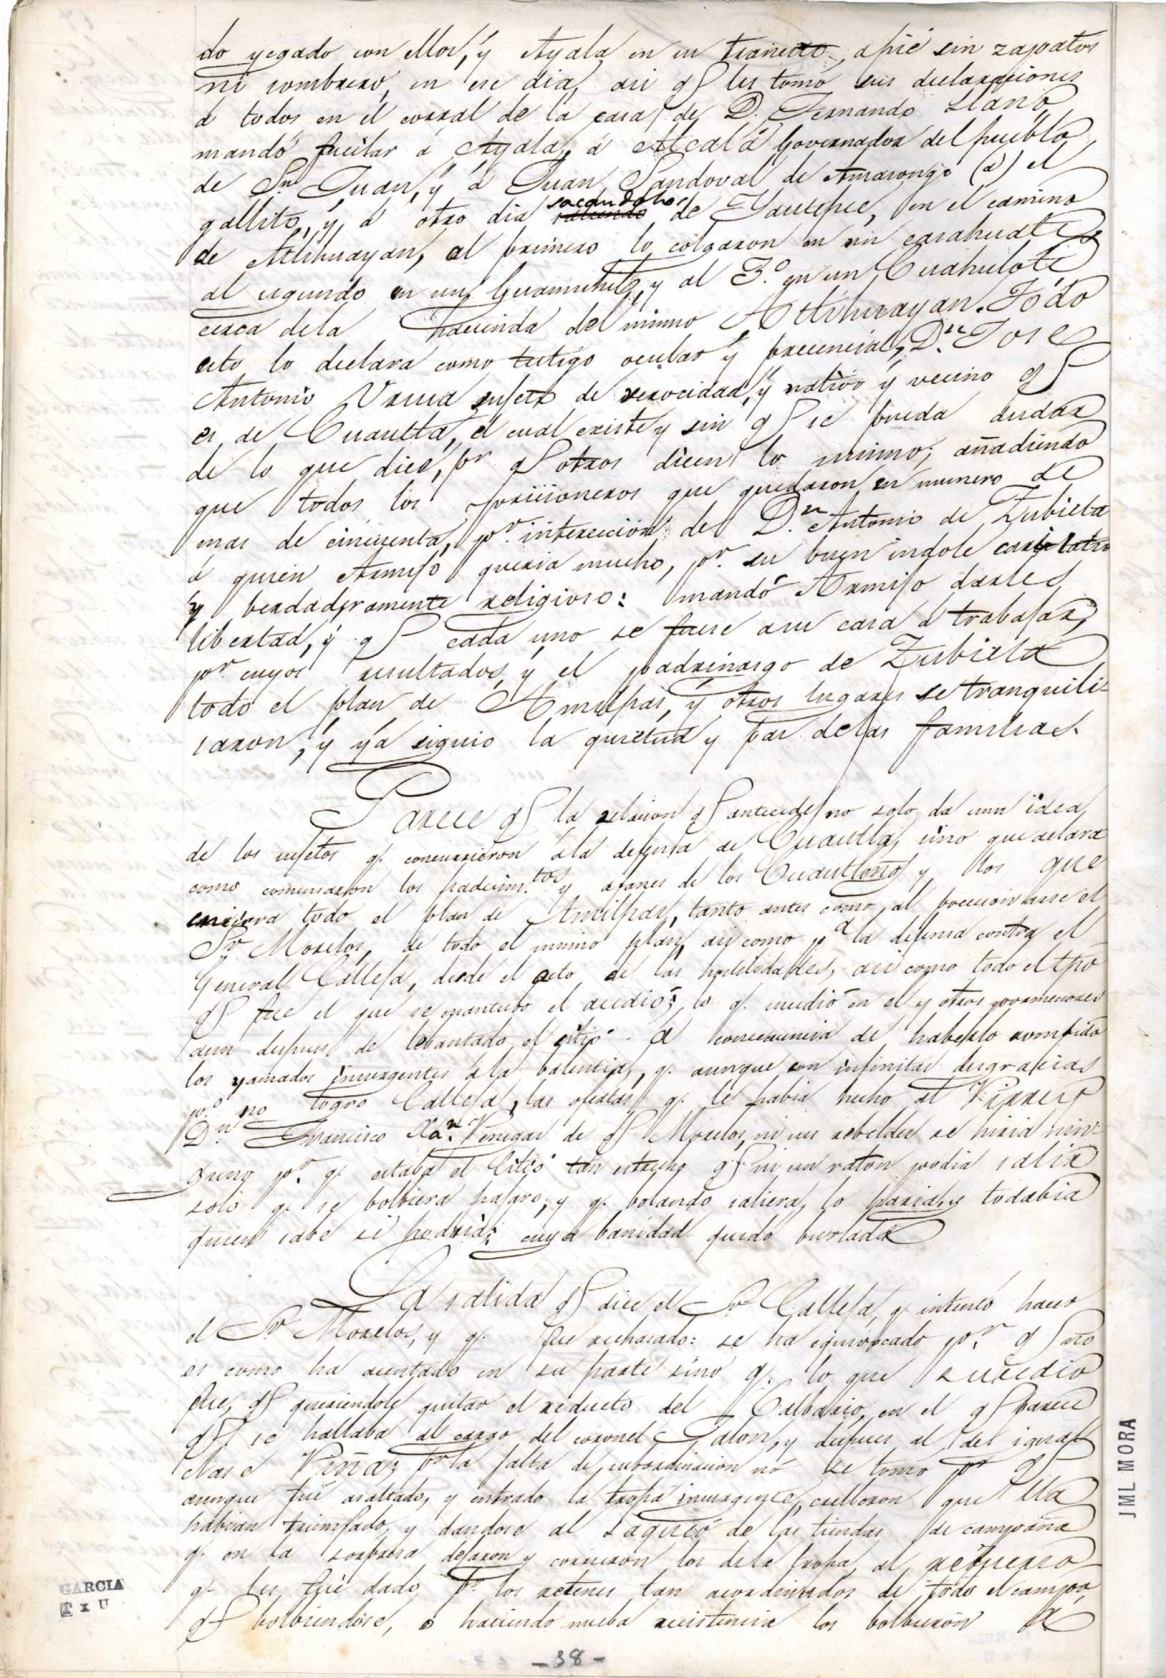 do yegado con ellos, y Ayala en su transito, apié sin zapatos
ni sombrero, en ese dia, asi q.e les tomó sus declaraciones
á todos en el corral de la casa de D. Fernando Llano
mandó fucilar á Ayala, á Alcalá Governador del pueblo
de Sn. Juan, y á Juan Sandoval de Amarongo (a) el
gallito, y á otro dia sacandolos de Yautepec, en el camino
de Atlihuayan, al primero lo colgaron en un casahuate
al segundo en un Guamuchil, y al 3.o en un Cuahulote
cerca dela hacienda del mismo Atlihuayan. Todo
esto lo declara como testigo ocular y precencial, D.n Jose
Antonio Urrea sujeto de verocidad, y nativo y vecino q.e
es, de Cuautla, el cual existe y sin q.e se pueda dudar
de lo que dice, p.r q.e otros dicen lo mismo; añadiendo
que todos los prisioneros que quedaron en numero de
mas de cincuenta, p.r interecion de D.n Antonio de Zubieta
á quien Armijo queria mucho, p.r su buen indole caritatro
y berdaderamente religioso: mandó Armijo darles
libertad, y q.e cada uno se fuese asu casa á trabajar,
p.r cuyos resultados, y el padrinasgo de Zubieta
todo el plan de Amilpas, y otros lugares se tranquili-
saron, y ya siguio la quietud y pas delas familias.
Parece q.e la relacion q.e antecede no solo da una idea
de los sujetos q. concurrieron ála defensa de Cuautla, sino que aclara
como comensaron los padecim.tos y afanes de los Cuautleños y los que
todo el plan de Amilpas, tanto antes como al precentarse el
Sr. Morelos, de todo el mismo plan, asi como p.a la defensa contra el
General Calleja, desde el acto de las hostilidades, asi como todo el tpo
q.e fue el que se mantubo el asedio; lo q. cucedió en el y otros pormenores
aun despues de lebantado el sitio á consecuencia de haberlo rompido
los yamados insurgentes á la balentia, q. aunque con infinitas desgracias
no logro Calleja las ofertas q. le habia hecho al Virrey
D.n Francisco Xa.r Venegas de q.e Morelos, ni sus rebeldes se hiria nin-
guno p.r q. estaba el Citio tan estrecho q.e ni un raton podia salir
solo q. se bolbiera pajaro, y q. bolando saliera, lo haria, y todabia
quien sabe si podria; cuya banidad quedo burlada
La salida q.e dice el Sr. Calleja, q. intentó hacer
el Sr. Morelos, y q. fue rechasado: se ha equibocado p.r q.e no
es como ha asentado en su parte sino q. lo que sucedio
fue, q.e queriendole quitar el reducto del Calbario, en el q.e parece
q.e se hallaba al cargo del coronel Galon, y despues al del igual
clase Viña; p.r la falta de subordinacion no se tomo p.r q.e
aunque fue asaltado, y entrado la tropa insurgente, crelleron que lla
habian triumfado, y dandose al saqueo de las tiendas de campaña
q. en la sorpresa dejaron y corrieron los dela tropa, al refuerso
q. les fué dado p.r los retenes tan acordinados de todo el campo,
q.e bolbiendose, o haciendo nueba resistencia los bolbieron á
- 38 -
GARCIA
T x U
JML MORA